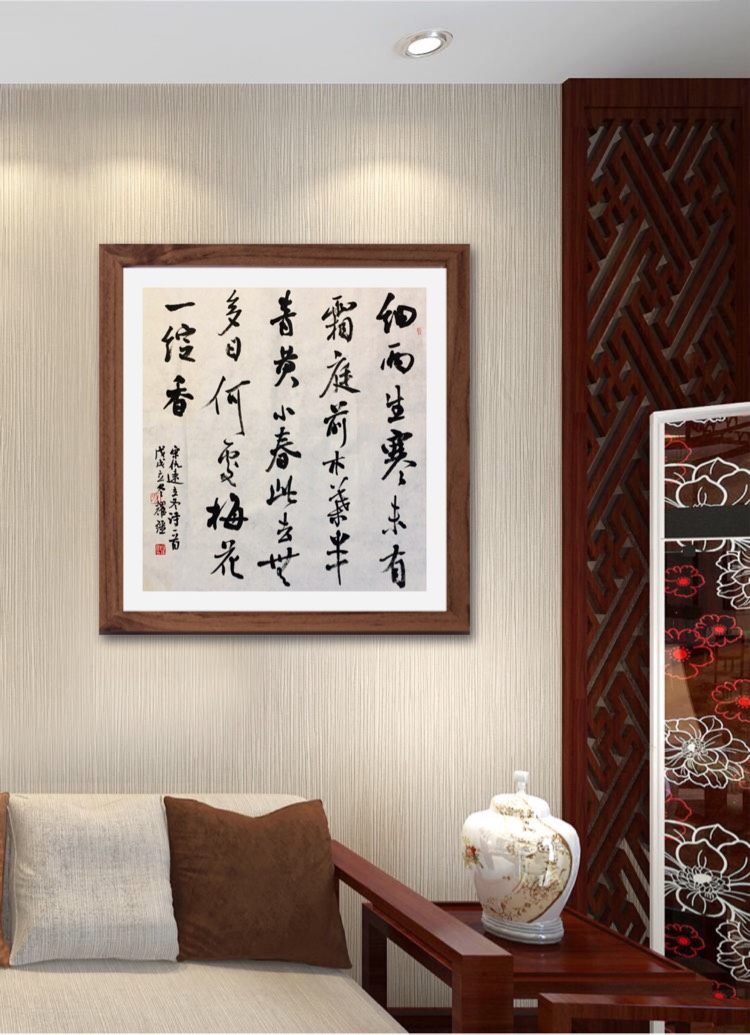 细雨生寒未有
霜庭前木叶半
青黄小春此去无
多日何处梅花
一绽香
宋仇远立冬诗一首
戊戌立冬耀强